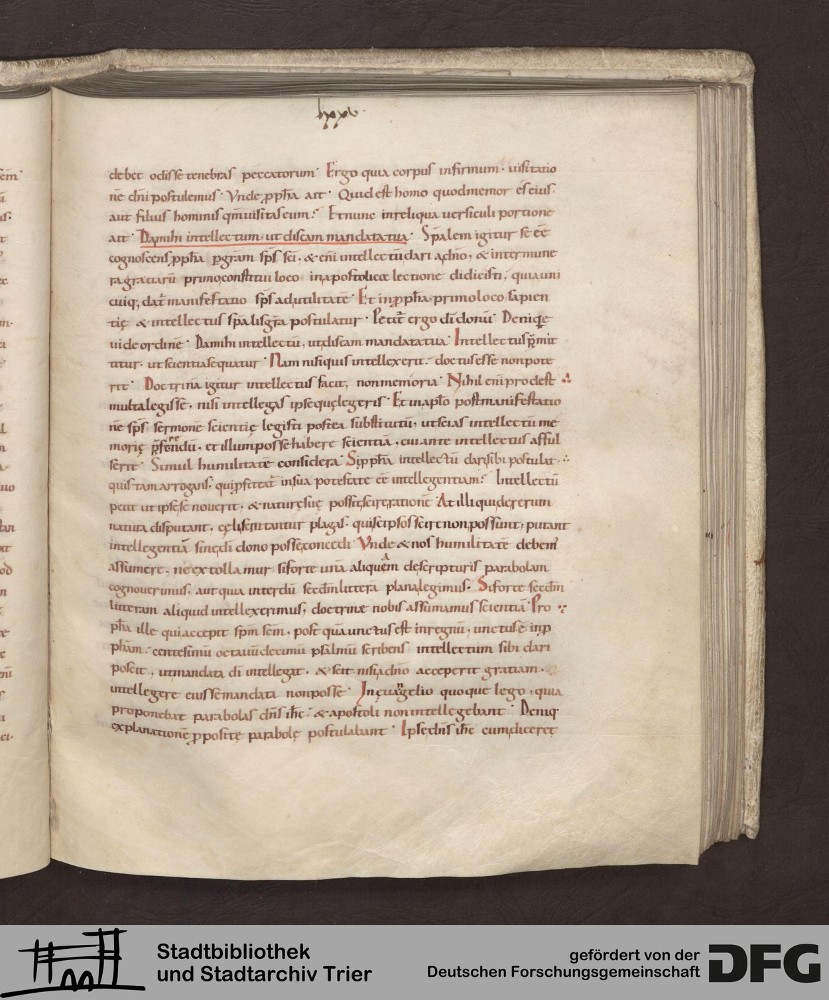 lxxv.
debet odisse tenebras peccatorum. Ergo quia corpus infirmum. uisitatio
nē dn̄i postulemus. Vnde ꝓph̄a ait. Quid est homo quod memor es eius
aut filius hominis qm̄ uisitas eum: Et nunc in reliqua uersiculi portione
ait. Da mihi intellectum. ut discam mandata tua. Sp̄alem igitur se eē
cognoscens ꝓph̄a ꝑ grām sp̄s sc̄i. & eni intellectū dari a dn̄o, & inter mune
ra gratiarū primo constitui loco. in apostolicae lectione didicisti, quia uni
cuiq; dat̄ manifestatio sp̄s ad utilitatē. Et in ꝓph̄a primo loco sapien
tię & intellectus sp̄alis gr̄a postulatur. Petit̄ ergo dī donū. Denique
uide ordinē. Da mihi intellectū, ut discam mandata tua. Intellectus p̄mit
titur. ut scientia sequatur. Nam nisi quis intellexerit. doctus esse non pote
rit. Doctrinā igitur intellectus facit, non memoria. Nihil eni prodest
multa legisse, nisi intellegas ipse quę legeris. Et in aplo post manifestatio
nē sp̄s sermonē scientię legisti postea substitutū, ut scias intellectū me
morię p̄ferendū, et illum posse habere scientiā, cui ante intellectus afful
serit. Simul humilitatē considera. Si ꝓph̄a intellectū dari sibi postulat.
quis tam arrogans. qui p̄sitetat̄ in sua potestate eē intellegentiam: Intellectū
petit ut ipse se nouerit, & naturę suę possit scire rationē. At illi qui de rerum
natura disputant, cęli se mtantur plagas. qui se ipsos scire non possunt, putant
intellegentiā sine dī dono posse concedi. Vnde & nos humilitatē debem
assumere, ne extollamur si forte unā aliquam de scripturis parabolam
cognouerimus, aut quia interdū sc̄dm litterā plana legimus. Si forte sc̄dm
litteram aliquid intellexerimus, doctrinæ nobis assumamus scientiā. Pro
ph̄a ille qui accepit sp̄m sc̄m, post quā unctus est in regnū, unctus ē in ꝓ
ph̄am. centesimū octauū decimū psalmū scribens intellectum sibi dari
poscit, ut mandata dī intellegat. & scit nisi a dn̄o acceperit gratiam.
intellegere eius se mandata non posse. In euangelio quoque lego, quia
proponebat parabolas dn̄s ihc̄. & apostoli non intellegebant. Deniq;
explanationē ꝓpositę parabolę postulabant. Ipse dn̄s ihc̄ cum diceret
Stadtbibliothek
und Stadtarchiv Trier
gefördert von der
Deutschen Forschungsgemeinschaft
DFG